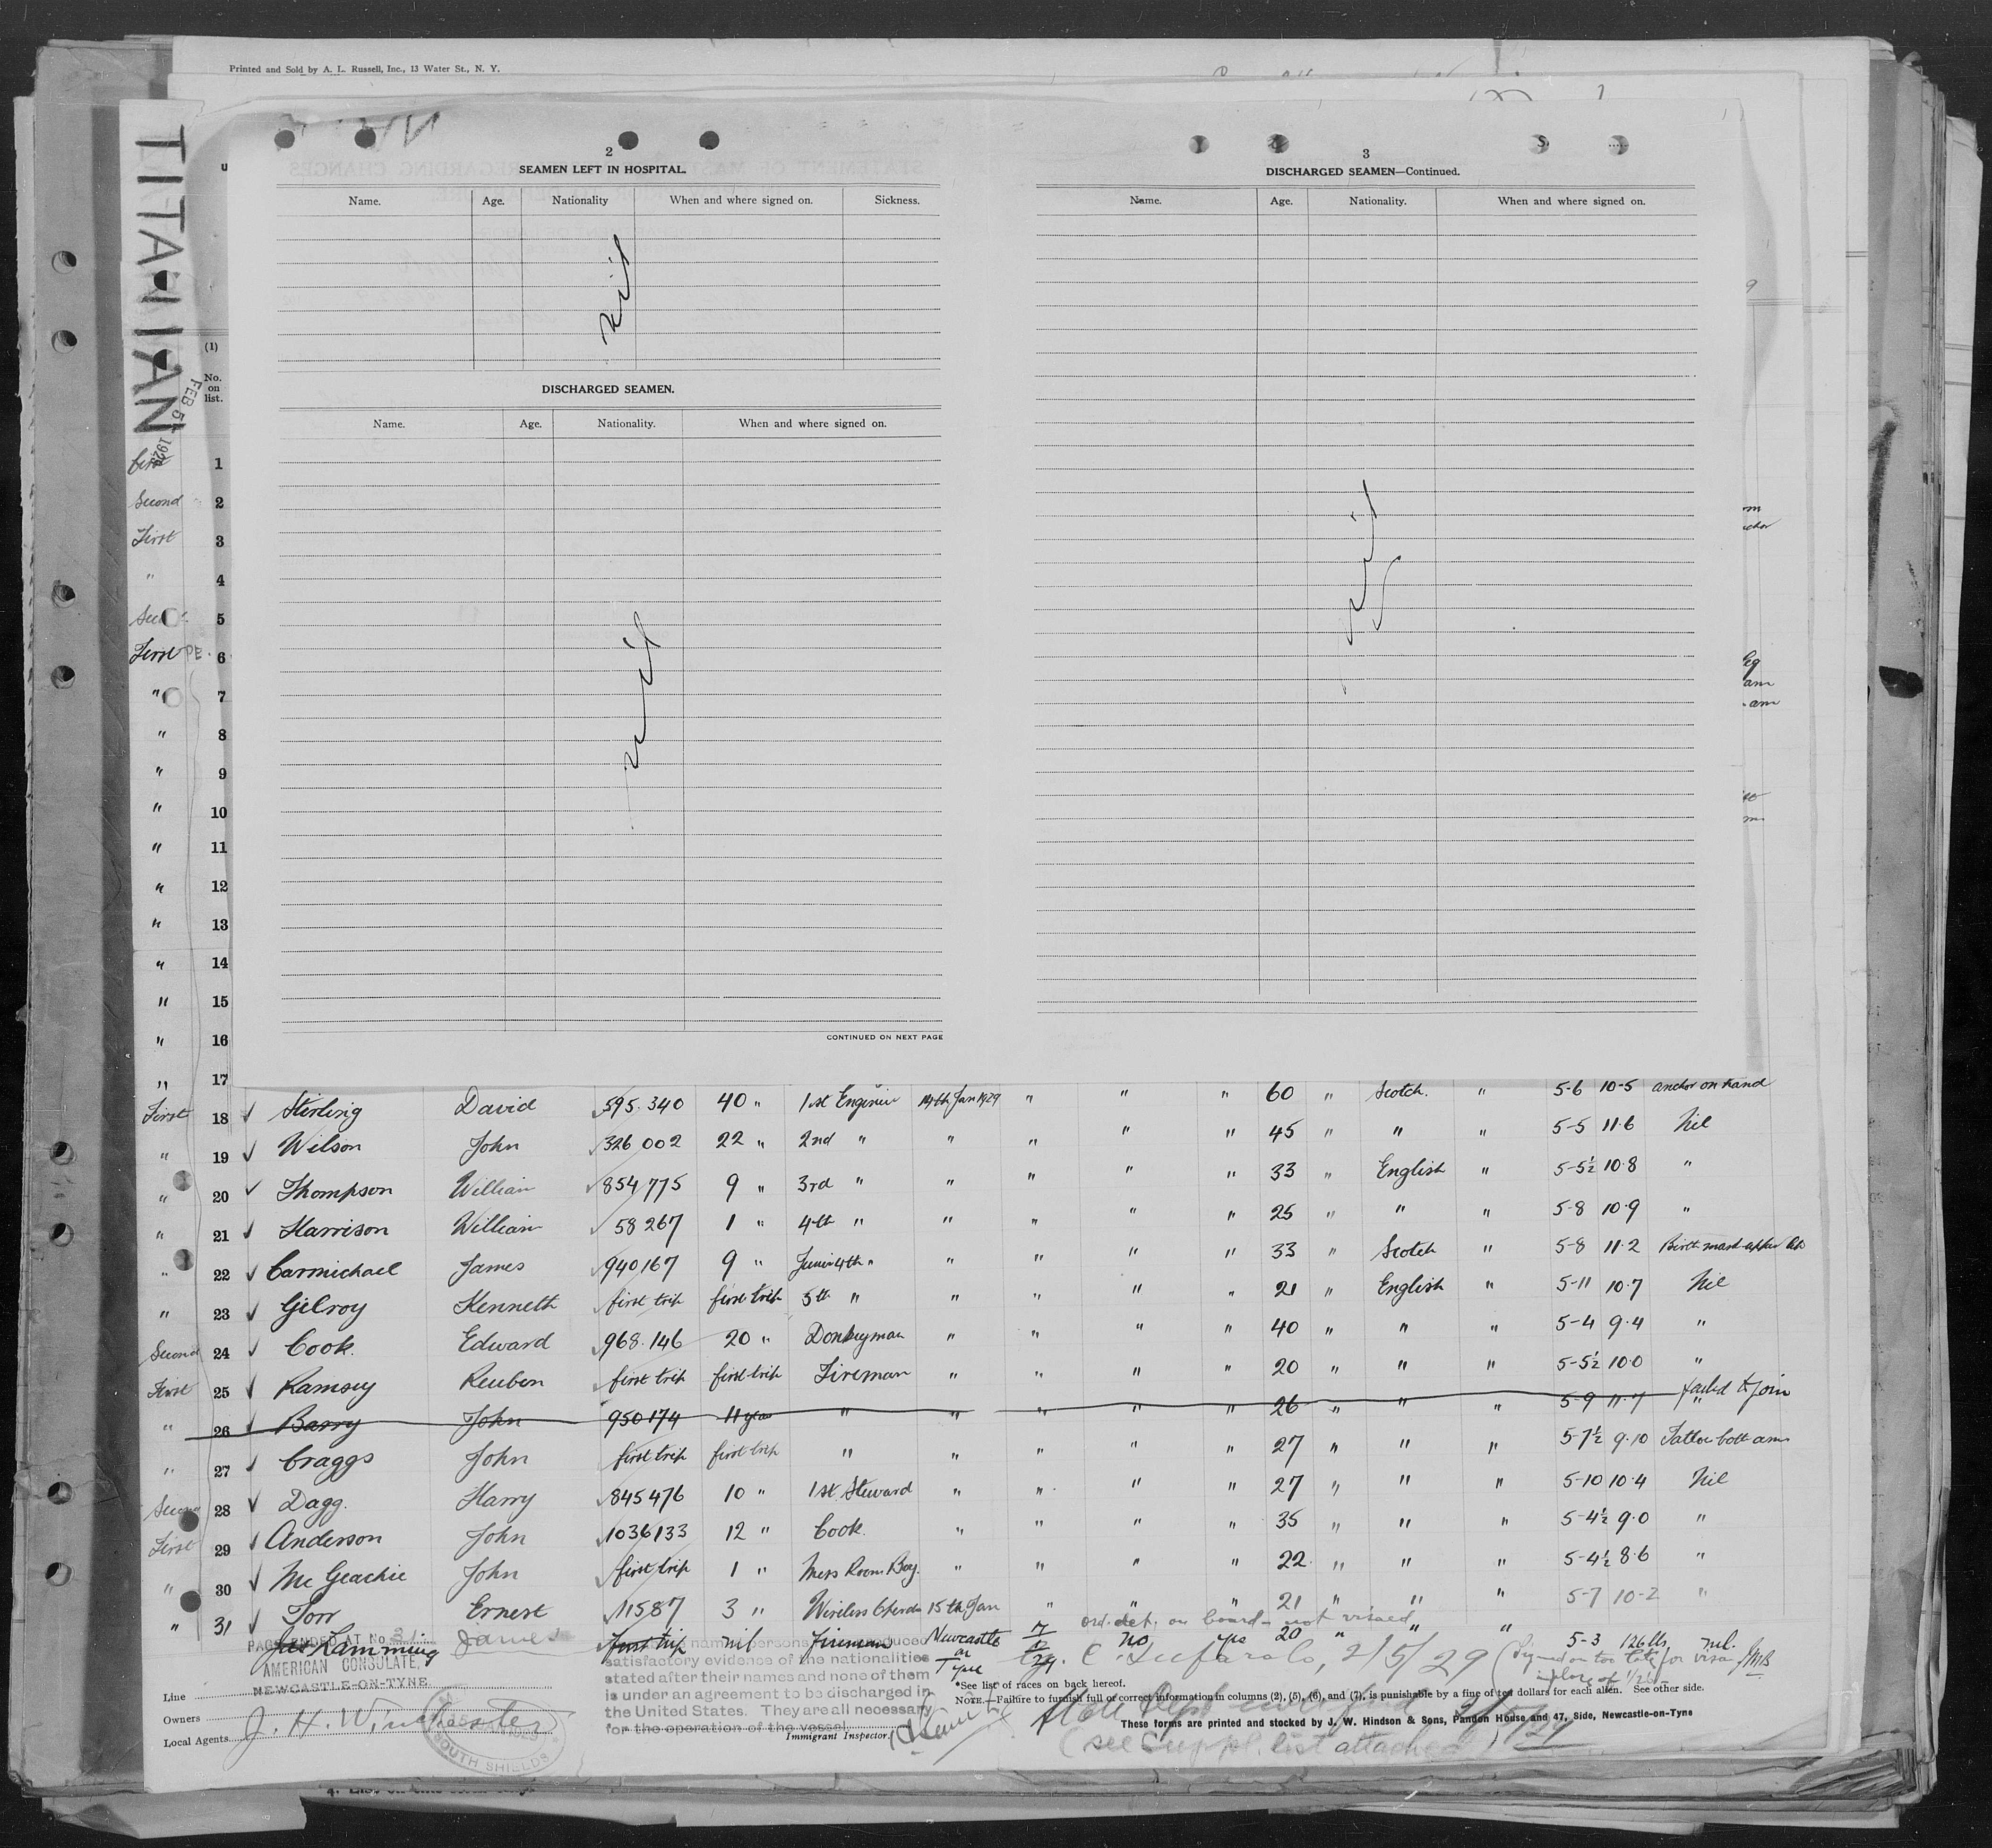 Printed and Sold by A. L. Russell, Inc., 13 Water St., N. Y.
TITANIAN
FEB 5 1929
2
SEAMEN LEFT IN HOSPITAL.
Name. Age. Nationality When and where signed on. Sickness.
Nil
DISCHARGED SEAMEN.
Name. Age. Nationality. When and where signed on.
Nil
CONTINUED ON NEXT PAGE
3
DISCHARGED SEAMEN—Continued.
Name. Age. Nationality. When and where signed on.
Nil
(1)
No. on list.
First 1
Second 2
First 3
" 4
5
First 6
" 7
" 8
" 9
" 10
" 11
" 12
" 13
" 14
" 15
" 16
" 17
First 18 Stirling David 595.340 40 " 1st Engineer 14th Jan 1929 " " " 60 " Scotch. " 5-6 10-5 anchor on hand
" 19 Wilson John 326 002 22 " 2nd " " " " " 45 " " " 5-5 11.6 Nil
" 20 Thompson William 854775 9 " 3rd " " " " " 33 " English " 5-5½ 10.8 "
" 21 Harrison William 58267 1 " 4th " " " " " 25 " " " 5-8 10.9 "
" 22 Carmichael James 940167 9 " Junior 4th " " " " " 33 " Scotch " 5-8 11.2 Birth mark upper
" 23 Gilroy Kenneth first trip first trip 5th " " " " " 21 " English " 5-11 10.7 Nil
Second 24 Cook. Edward 968.146 20 " Donkeyman " " " " 40 " " " 5-4 9.4 "
First 25 Ramsey Reuben first trip first trip Fireman " " " " 20 " " " 5-5½ 10.0 "
" 26 Barry John 950174 11 years " " " " " 26 " " " 5-9 11.7 " failed to join
" 27 Craggs John first trip first trip " " " " " 27 " " " 5-7½ 9.10 Tattoo both arms
Second 28 Dagg. Harry 845476 10 " 1st Steward " " " " 27 " " " 5-10 10.4 Nil
First 29 Anderson John 1036133 12 " Cook. " " " " 35 " " " 5-4½ 9.0 "
" 30 Mc Geachie John first trip 1 " Mess Room Boy. " " " " 22 " " " 5-4½ 8.6 "
" 31 Torr Ernest 11587 3 " Wireless 15th Jan " " " 21 " " " 5-7 10-2 "
ord. det. on board - not visaed
Lamming James first trip nil Fireman Newcastle on Tyne no yes 20 " " " 5-3 126 lbs nil.
PAGE ENDED AT No 31
AMERICAN CONSULATE,
NEWCASTLE-ON-TYNE
satisfactory evidence of the nationalities
stated after their names and none of them
is under an agreement to be discharged in
the United States. They are all necessary
for the operation of the vessel
2/5/29 (Signed on too late for visa
in place of
*See list of races on back hereof.
NOTE.—Failure to furnish full or correct information in columns (2), (5), (6), and (7), is punishable by a fine of ten dollars for each alien. See other side.
These forms are printed and stocked by J. W. Hindson & Sons, Pandon House and 47, Side, Newcastle-on-Tyne
Line
Owners
Local Agents J. H. Winchester
SOUTH SHIELDS
Immigrant Inspector.
(see Suppl. list attached)